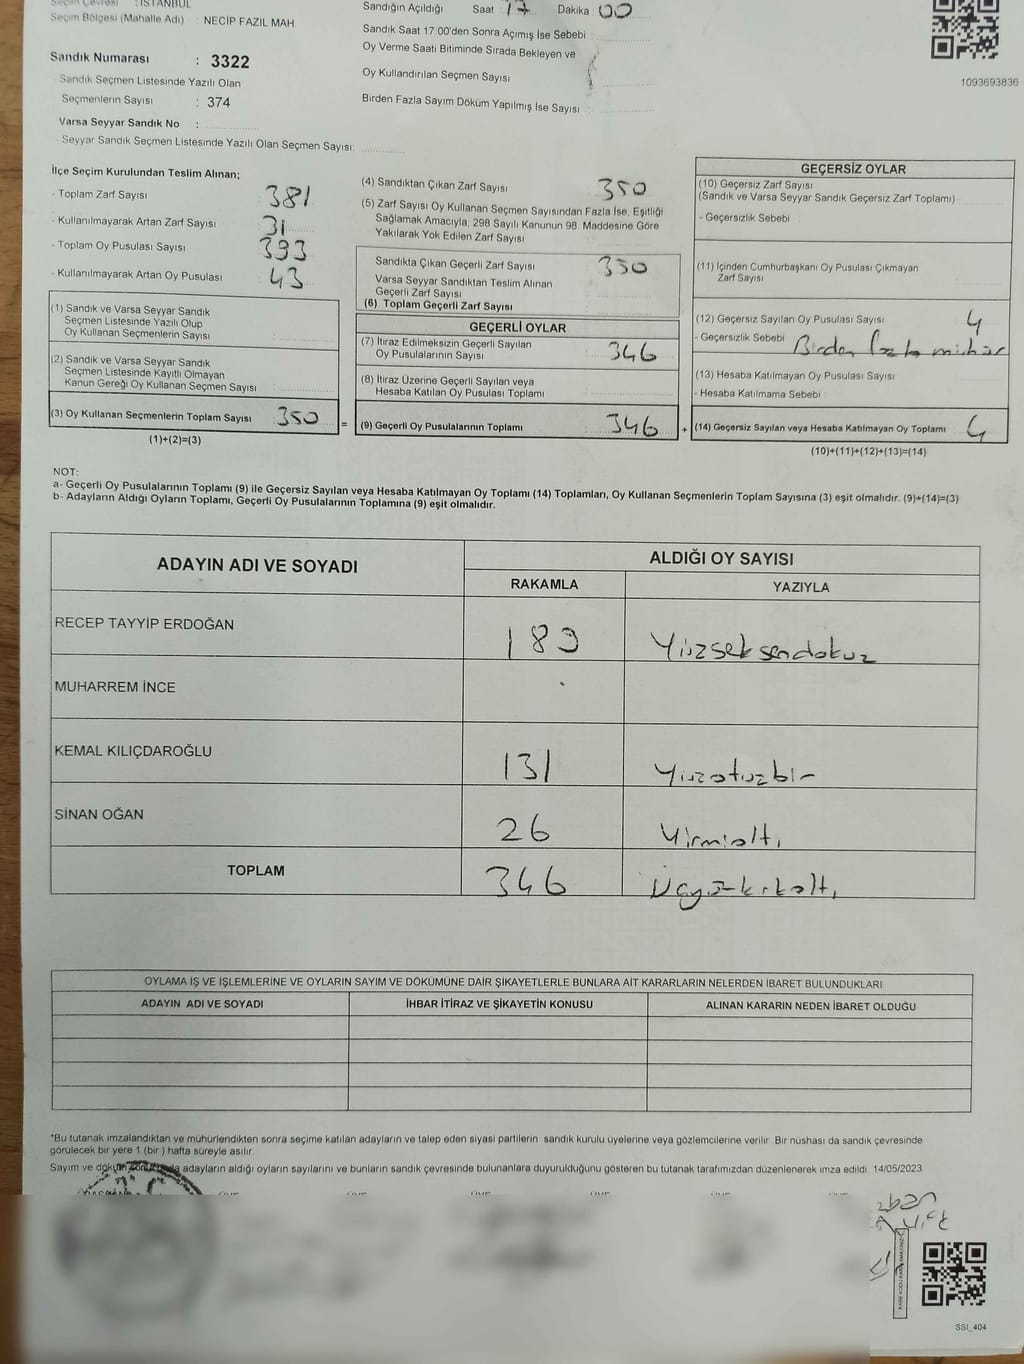 Seçim Çevresi : İSTANBUL
Seçim Bölgesi (Mahalle Adı) : NECİP FAZIL MAH
Sandık Numarası : 3322
- Sandık Seçmen Listesinde Yazılı Olan
Seçmenlerin Sayısı : 374
Varsa Seyyar Sandık No :
- Seyyar Sandık Seçmen Listesinde Yazılı Olan Seçmen Sayısı:
Sandığın Açıldığı Saat 17 Dakika 00
Sandık Saat 17:00'den Sonra Açımış İse Sebebi :
Oy Verme Saati Bitiminde Sırada Bekleyen ve
Oy Kullandırılan Seçmen Sayısı
Birden Fazla Sayım Döküm Yapılmış İse Sayısı :
1093693836
İlçe Seçim Kurulundan Teslim Alınan;
- Toplam Zarf Sayısı 381
- Kullanılmayarak Artan Zarf Sayısı 31
- Toplam Oy Pusulası Sayısı 393
- Kullanılmayarak Artan Oy Pusulası 43
(1) Sandık ve Varsa Seyyar Sandık
Seçmen Listesinde Yazılı Olup
Oy Kullanan Seçmenlerin Sayısı :
(2) Sandık ve Varsa Seyyar Sandık
Seçmen Listesinde Kayıtlı Olmayan
Kanun Gereği Oy Kullanan Seçmen Sayısı :
(3) Oy Kullanan Seçmenlerin Toplam Sayısı 350 =
(1)+(2)=(3)
(4) Sandıktan Çıkan Zarf Sayısı 350
(5) Zarf Sayısı Oy Kullanan Seçmen Sayısından Fazla İse, Eşitliği
Sağlamak Amacıyla, 298 Sayılı Kanunun 98. Maddesine Göre
Yakılarak Yok Edilen Zarf Sayısı :
Sandıkta Çıkan Geçerli Zarf Sayısı 350
Varsa Seyyar Sandıktan Teslim Alınan
Geçerli Zarf Sayısı
(6) Toplam Geçerli Zarf Sayısı
GEÇERLİ OYLAR
(7) İtiraz Edilmeksizin Geçerli Sayılan
Oy Pusulalarının Sayısı : 346
(8) İtiraz Üzerine Geçerli Sayılan veya
Hesaba Katılan Oy Pusulası Toplamı :
(9) Geçerli Oy Pusulalarının Toplamı : 346 +
GEÇERSİZ OYLAR
(10) Geçersiz Zarf Sayısı
(Sandık ve Varsa Seyyar Sandık Geçersiz Zarf Toplamı) :
- Geçersizlik Sebebi :
(11) İçinden Cumhurbaşkanı Oy Pusulası Çıkmayan
Zarf Sayısı :
(12) Geçersiz Sayılan Oy Pusulası Sayısı : 4
- Geçersizlik Sebebi : Birden fazla mühür
(13) Hesaba Katılmayan Oy Pusulası Sayısı :
- Hesaba Katılmama Sebebi :
(14) Geçersiz Sayılan veya Hesaba Katılmayan Oy Toplamı : 4
(10)+(11)+(12)+(13)=(14)
NOT:
a- Geçerli Oy Pusulalarının Toplamı (9) ile Geçersiz Sayılan veya Hesaba Katılmayan Oy Toplamı (14) Toplamları, Oy Kullanan Seçmenlerin Toplam Sayısına (3) eşit olmalıdır. (9)+(14)=(3)
b- Adayların Aldığı Oyların Toplamı, Geçerli Oy Pusulalarının Toplamına (9) eşit olmalıdır.
ADAYIN ADI VE SOYADI ALDIĞI OY SAYISI
RAKAMLA YAZIYLA
RECEP TAYYİP ERDOĞAN 189 Yüzseksendokuz
MUHARREM İNCE
KEMAL KILIÇDAROĞLU 131 Yüzotuzbir
SİNAN OĞAN 26 Yirmialtı
TOPLAM 346 Üçyüzkırkaltı
OYLAMA İŞ VE İŞLEMLERİNE VE OYLARIN SAYIM VE DÖKÜMÜNE DAİR ŞİKAYETLERLE BUNLARA AİT KARARLARIN NELERDEN İBARET BULUNDUKLARI
ADAYIN ADI VE SOYADI İHBAR İTİRAZ VE ŞİKAYETİN KONUSU ALINAN KARARIN NEDEN İBARET OLDUĞU
*Bu tutanak imzalandıktan ve mühürlendikten sonra seçime katılan adayların ve talep eden siyasi partilerin sandık kurulu üyelerine veya gözlemcilerine verilir. Bir nüshası da sandık çevresinde
görülecek bir yere 1 (bir ) hafta süreyle asılır.
Sayım ve döküm sonucunda adayların aldığı oyların sayılarını ve bunların sandık çevresinde bulunanlara duyurulduğunu gösteren bu tutanak tarafımızdan düzenlenerek imza edildi 14/05/2023
SSI_404